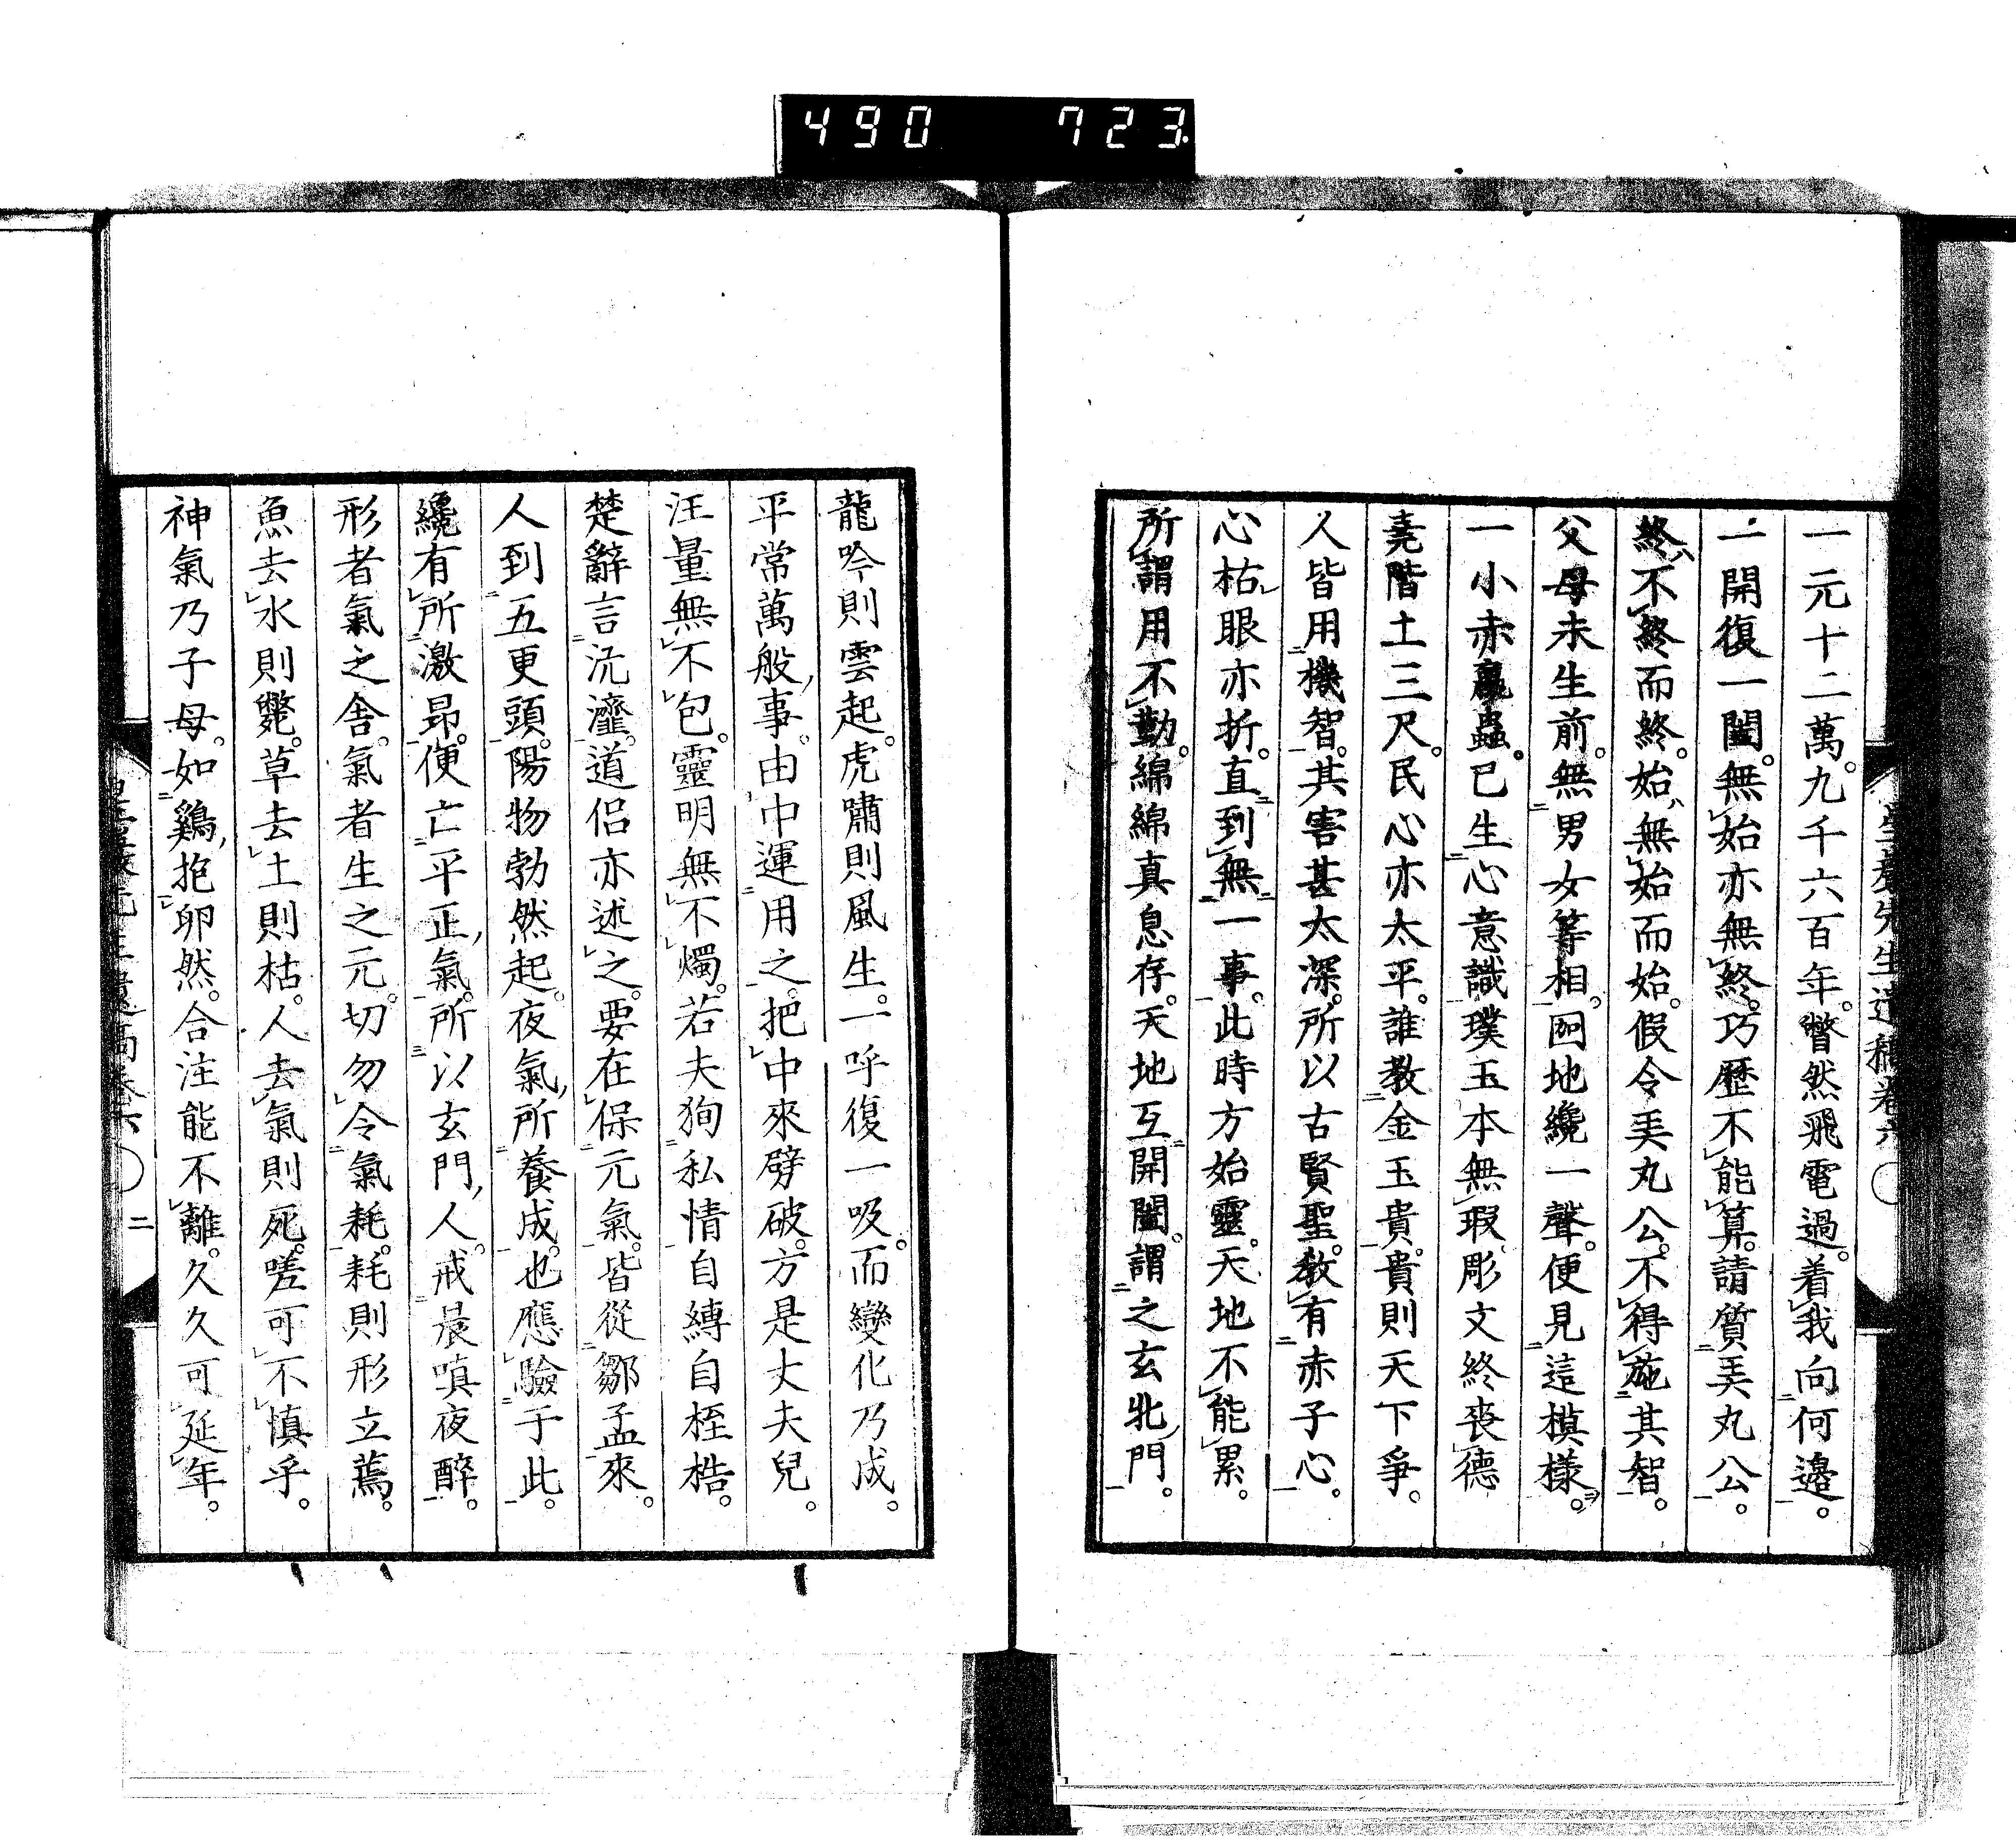 490 723
一元十二萬。九千六百年。瞥然飛電過。着我向何邊。
一開復一闔。無始亦無終。巧歷不能算。請質美丸公。
終不終而終。始無始而始。假令美丸公。不得施其智。
父母未生前。無男女等相。囘地纔一聲。便見這模樣。
一小赤蠃蟲。已生心意識。璞玉本無瑕。彫文終喪德
堯階土三尺。民心亦太平。誰教金玉貴。貴則天下爭。
人皆用機智。其害甚太深。所以古賢聖。教有赤子心。
心枯眼亦折。直到無一事。此時方始靈。天地不能累。
所謂用不勤。綿綿真息存。天地互開闔。謂之玄牝門。
先生遺稿卷六
龍吟則雲起。虎嘯則風生。一呼復一吸。而變化乃成。
平常萬般事。由中運用之。把中來劈破。方是丈夫兒。
汪量無不包。靈明無不燭。若夫狥私情自縛自桎梏。
楚辭言沆瀣。道侶亦述之。要在保元氣。皆從鄒孟來。
人到五更頭。陽物勃然起。夜氣所養成。也應驗于此。
纔有所激昂。便亡平正氣。所以玄門人。戒晨嗔夜醉。
形者氣之舍。氣者生之元。切勿令氣耗。耗則形立蔫。
魚去水則斃。草去土則枯。人去氣則死。嗟可不慎乎。
神氣乃子母。如鷄抱卵然。合注能不離。久久可延年。
先生遺稿卷六 二